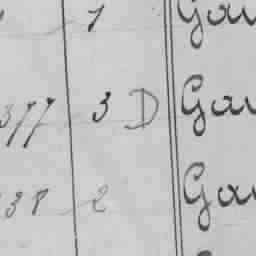 1 Gau
377 3 D Gau
38 2 Gau